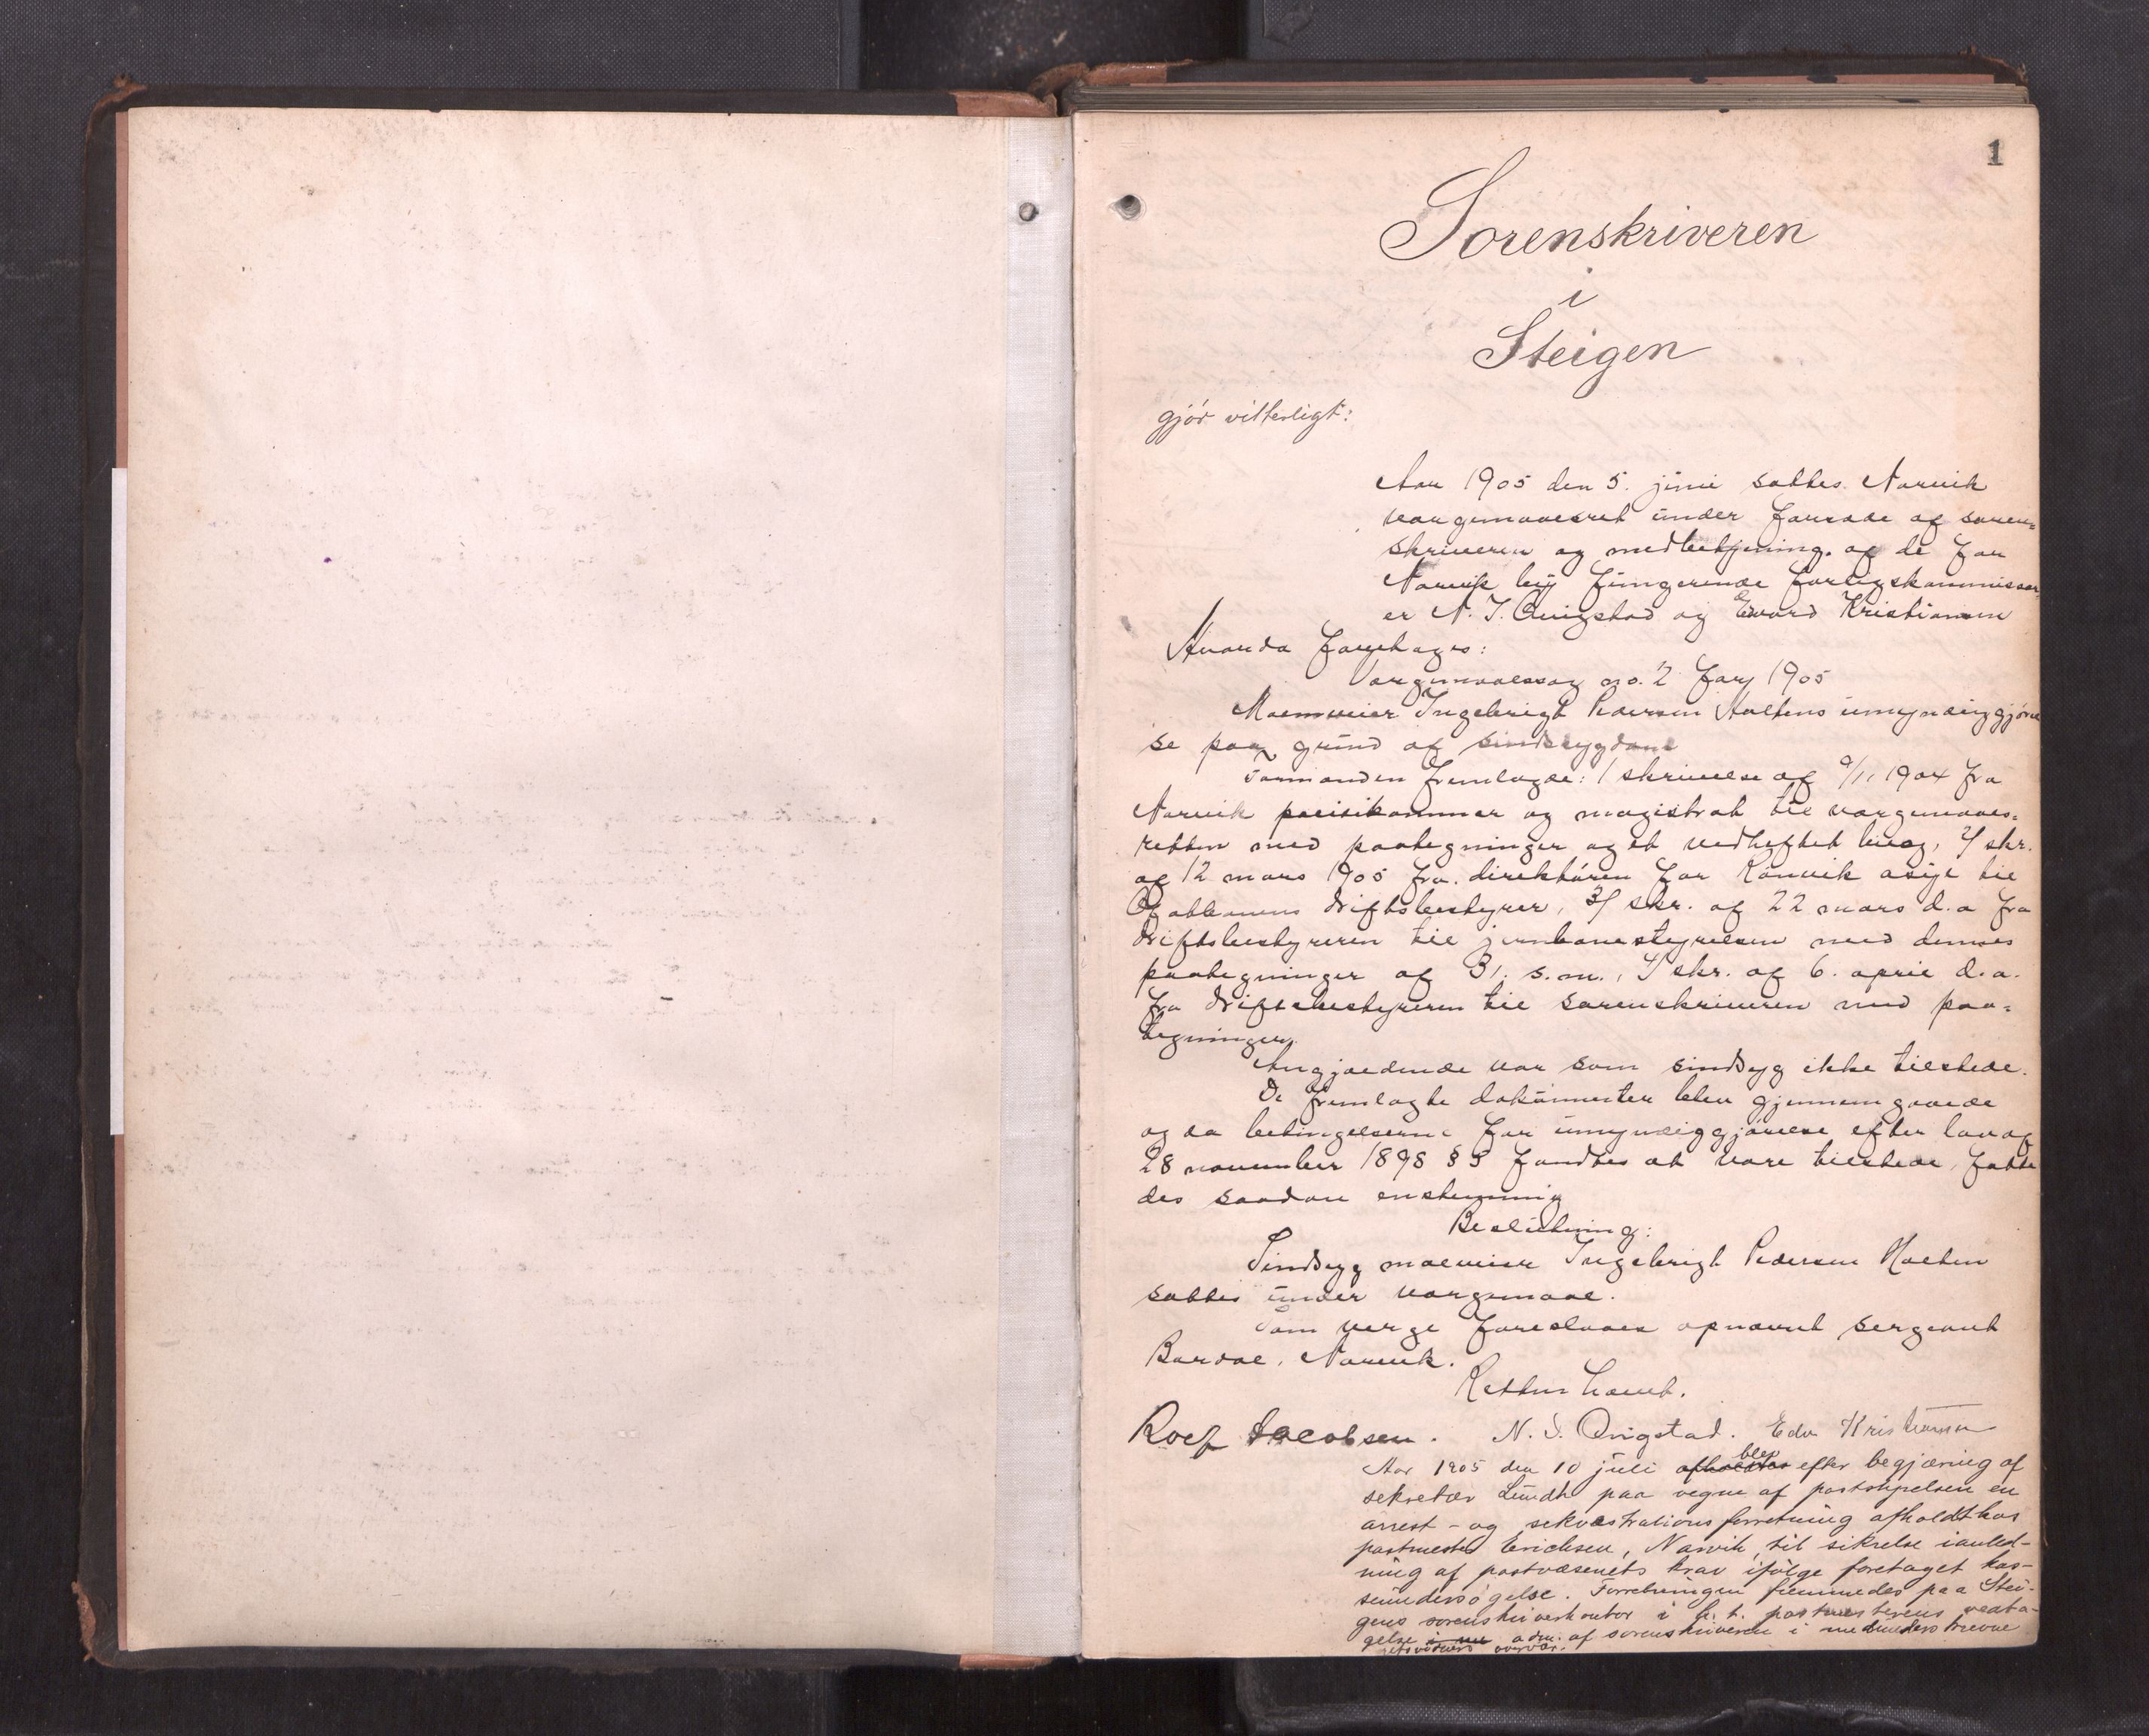 1
Sorenskriveren
i
Steigen
gjör vitterligt:
Aar 1905 den 5. juni sattes Narvik
vergemaalsret under forsæde af soren-
skriveren og medbetjening af de for
Narvik by fungerende forligskommissær-
er N. J. Qvigstad og Edvard Kristiansen
Hvorda foretages:
Vergemaalssag no. 2 for 1905
Malmveier Ingebrigt Pedersen Holtens umyndiggjørel
se paa grund af sindssygdom
Formanden fremlagde: 1 skrivelse af 9/11 1904 fra
Narvik politikammer og magistrat til vergemaals-
retten med paategninger og et vedheftet bilag, 2/ skr.
af 12 mars 1905 fra direktören for Rönvik asyl til
Ofotbanens driftsbestyrer, 3/ skr. af 22 mars d.a fra
driftsbestyreren til jernbanestyrelsen med dennes
paategninger af 31. s.m., 4/ skr. af 6. april d.a.
fra driftsbestyreren til sorenskriveren med paa-
tegninger.
Angjældende var som sindssyg ikke tilstede.
De fremlagte dokumenter blev gjennemgaaede
og da betingelserne for umyndiggjörelse efter lov af
28 november 1898 § 3 fandtes at være tilstede, fatte
des saadan enstemmig
Beslutning:
Sindssyg malmveier Ingebrigt Pedersen Holten
sættes under vergemaal.
Som verge foreslaaes opnævnt sergeant
Bardal, Narvik.
Retten hævet.
Rolf Jacobsen. N. J. Qvigstad. Edv Kristiansen
Aar 1905 den 10 juli afholdtes blev efter begjæring af
sekretær Lundh paa vegne af poststyrelsen en
arrest- og sekvestrationsforretning afholdt hos
postmester Erichsen, Narvik, til sikrelse i anled-
ning af postvæsenets krav ifölge foretaget kas-
seundersögelse. Forretningen fremmedes paa Stei-
gens sorenskriverkontor i h. t. postmesterens vedta-
gelse adm. af sorenskriveren i medunderskrevne
retsvidners overvær.